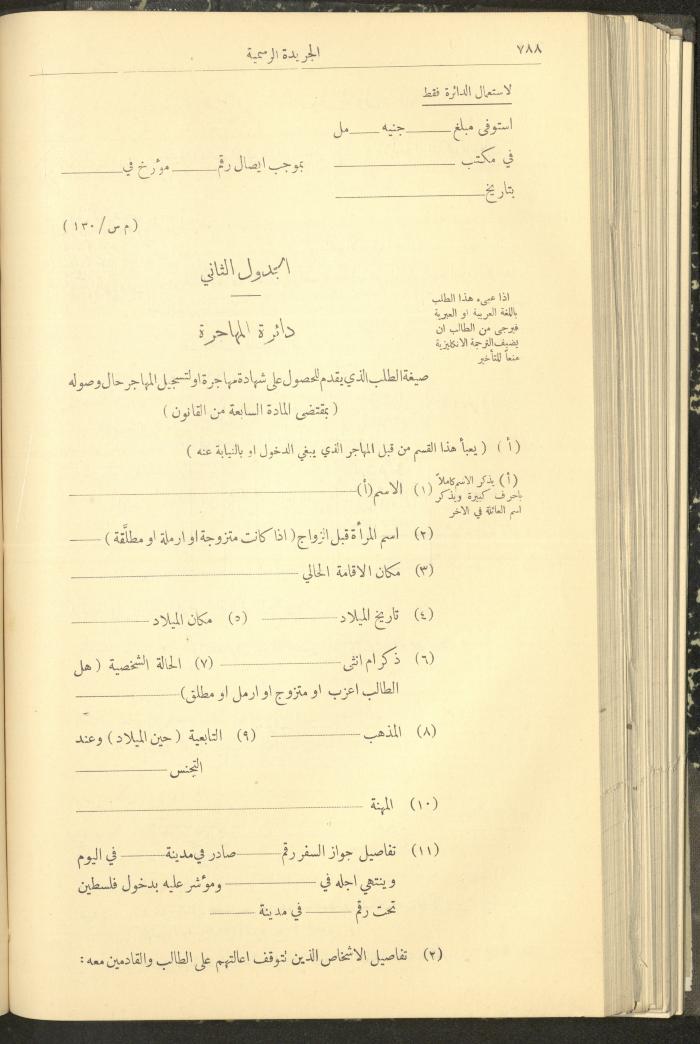 ٧٨٨
الجريدة الرسمية
لاستعمال الدائرة فقط
استوفى مبلغ ______ جنيه ____ مل
في مكتب ______ بموجب ايصال رقم ______ مؤرخ في ______
بتاريخ ______
( م س / ١٣٠ )
الجدول الثاني
دائرة المهاجرة
اذا عبىء هذا الطلب
باللغة العربية او العبرية
فيرجى من الطالب ان
يضيف الترجمة الانكليزية
منعاً للتأخير
صيغة الطلب الذي يقدم للحصول على شهادة مهاجرة او لتسجيل المهاجر حال وصوله
( بمقتضى المادة السابعة من القانون )
( أ ) ( يعبأ هذا القسم من قبل المهاجر الذي يبغي الدخول او بالنيابة عنه )
(أ) يذكر الاسم كاملاً
باحرف كبيرة ويذكر
اسم العائلة في الاخر
(١) الاسم (أ) ______
(٢) اسم المرأة قبل الزواج ( اذا كانت متزوجة او ارملة او مطلَّقة ) ____
(٣) مكان الاقامة الحالي ______
(٤) تاريخ الميلاد ______ (٥) مكان الميلاد ______
(٦) ذكر ام انثى ______ (٧) الحالة الشخصية ( هل
الطالب اعزب او متزوج او ارمل او مطلق) ______
(٨) المذهب ______ (٩) التابعية ( حين الميلاد ) وعند
التجنس ______
(١٠) المهنة ______
(١١) تفاصيل جواز السفر رقم ______ صادر في مدينة ______ في اليوم
وينتهي اجله في ______ ومؤشر عليه بدخول فلسطين
تحت رقم ______ في مدينة ______
(٢) تفاصيل الاشخاص الذين تتوقف اعالتهم على الطالب والقادمين معه :